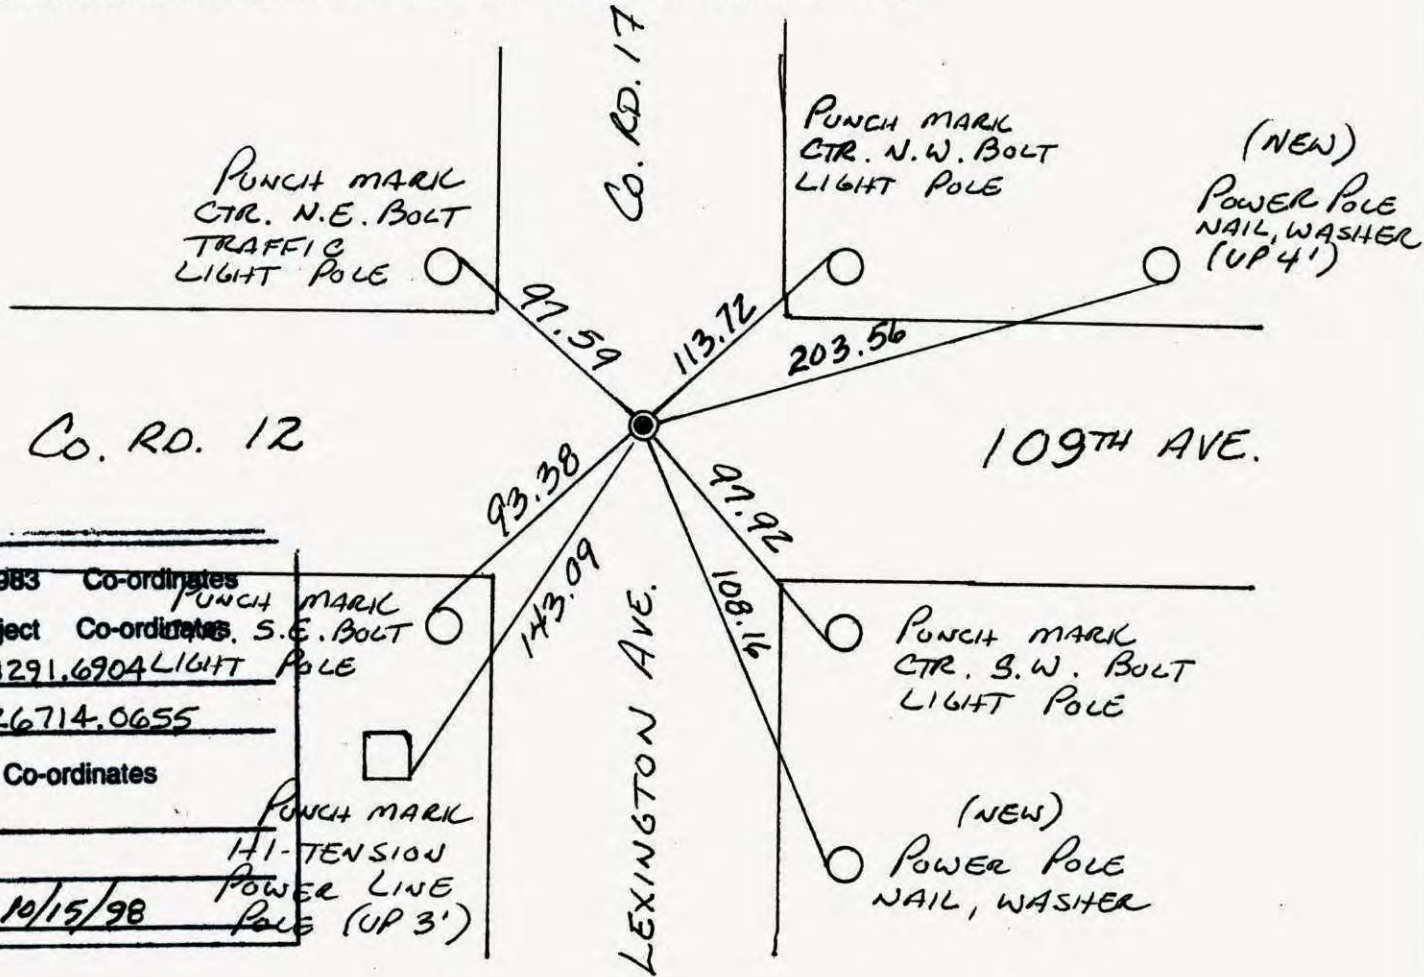 Co. RD. 17
PUNCH MARK
CTR. N.E. BOLT
TRAFFIC
LIGHT POLE
PUNCH MARK
CTR. N.W. BOLT
LIGHT POLE
(NEW)
POWER POLE
NAIL, WASHER
(UP 4')
97.59
113.72
203.56
Co. RD. 12
109TH AVE.
93.38
143.09
97.92
108.16
983 Co-ordinates
ject Co-ordinates
291.6904
26714.0655
Co-ordinates
10/15/98
PUNCH MARK
S.E. BOLT
LIGHT POLE
PUNCH MARK
HI-TENSION
POWER LINE
POLE (UP 3')
LEXINGTON AVE.
PUNCH MARK
CTR. S.W. BOLT
LIGHT POLE
(NEW)
POWER POLE
NAIL, WASHER